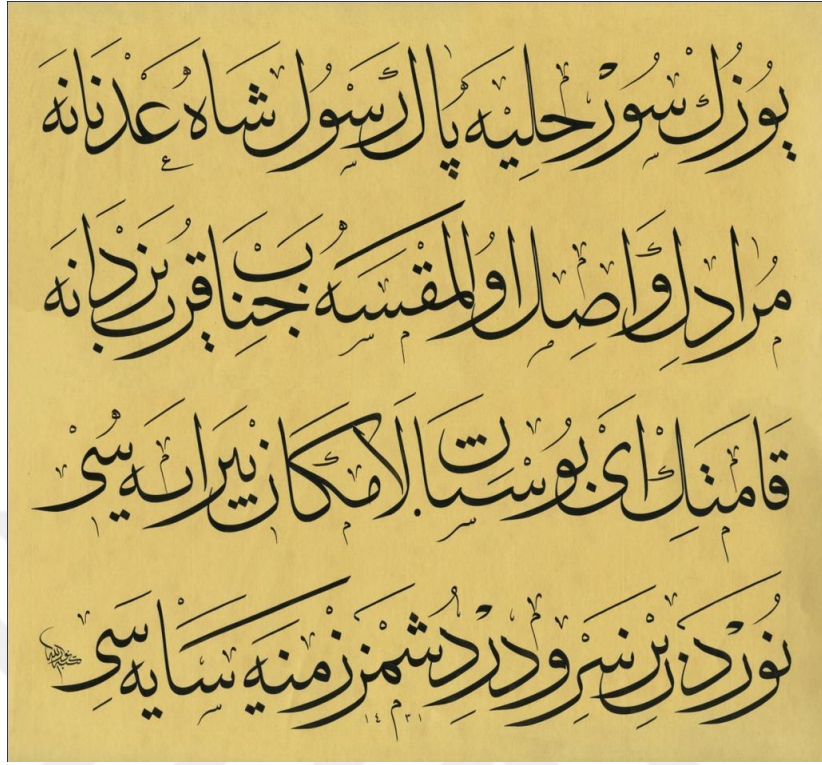 یوزك سور حلیه پاك رسول شاه عدنانه
مرادك واصل اولمقسه جناب قرب یزدانه
قامتك ای بوستان لامكان پیرایه سی
نوردن بر سرودر دشمز زمینه سایه سی
١٤٣١